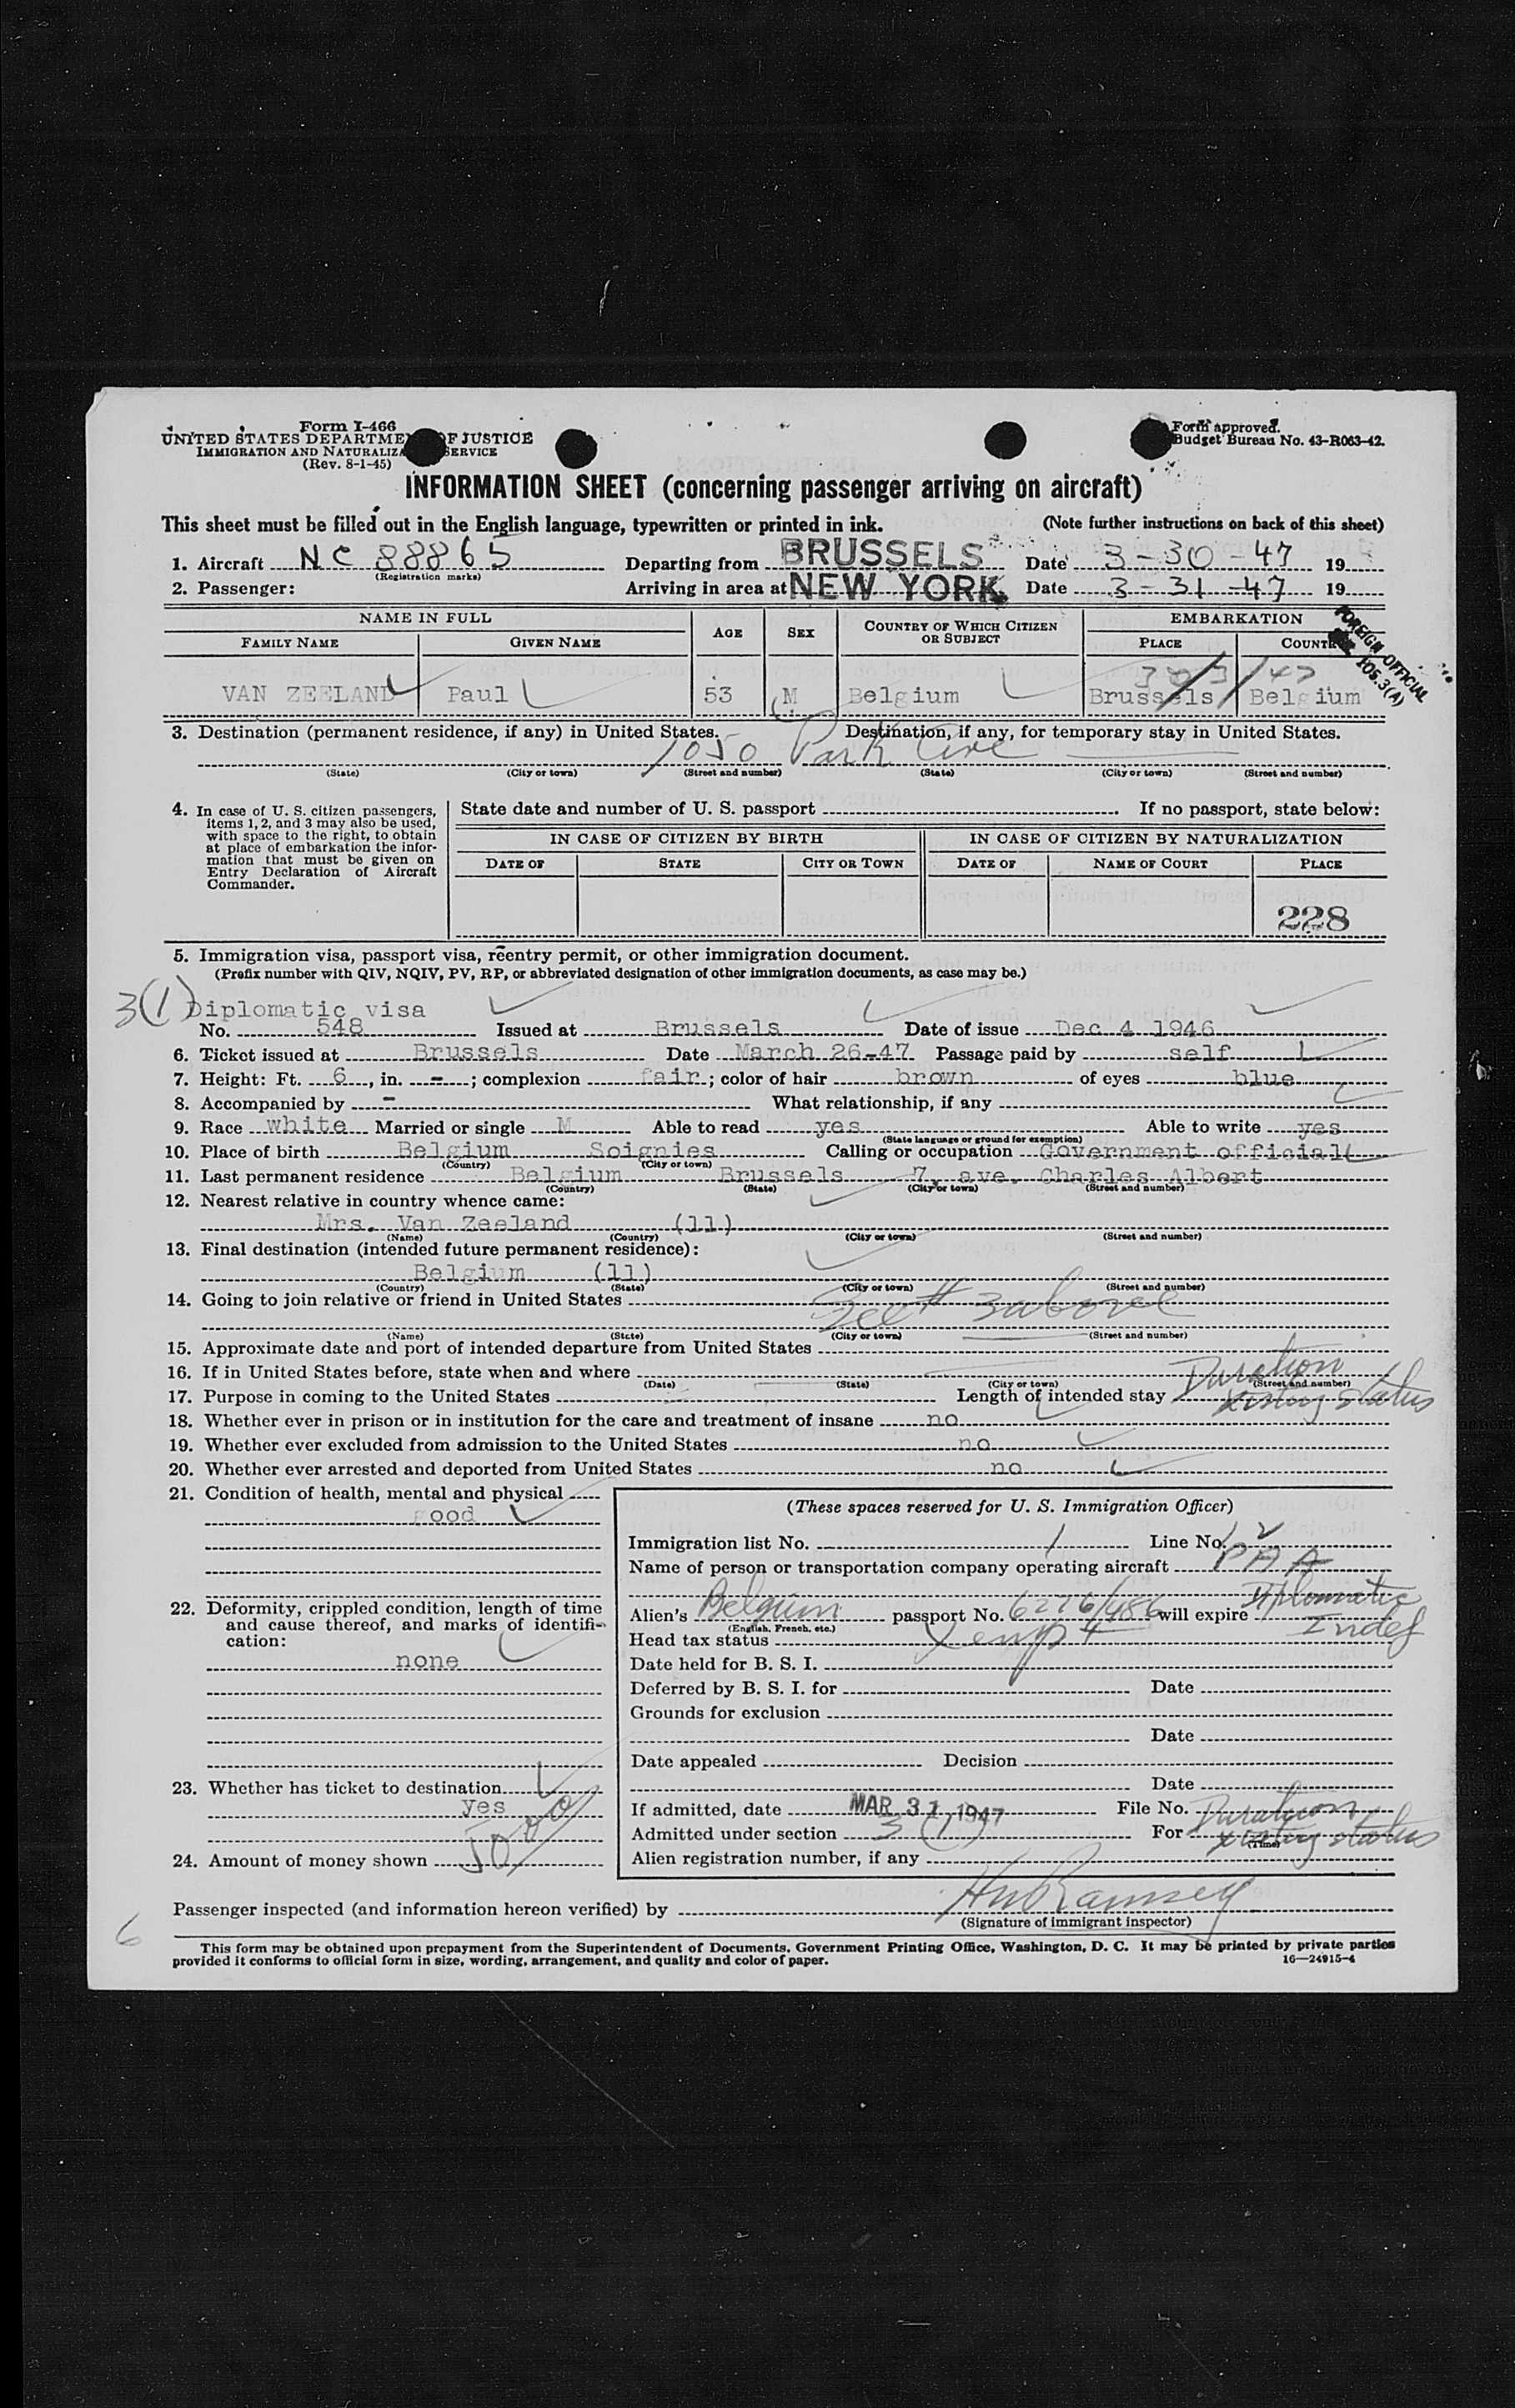 Form I-466
UNITED STATES DEPARTME F JUSTICE
IMMIGRATION AND NATURALIZA SERVICE
(Rev. 8-1-45)
Form approved.
Budget Bureau No. 43-R063-42.
INFORMATION SHEET (concerning passenger arriving on aircraft)
This sheet must be filled out in the English language, typewritten or printed in ink. (Note further instructions on back of this sheet)
1. Aircraft NC 88865 Departing from BRUSSELS Date 3-30-47 19
(Registration marks)
2. Passenger: Arriving in area at NEW YORK Date 3-31-47 19
NAME IN FULL AGE SEX COUNTRY OF WHICH CITIZEN OR SUBJECT EMBARKATION
FAMILY NAME GIVEN NAME PLACE COUNT
FOREIGN OFFICIAL
105.3(A)
30/3/47
VAN ZEELAND Paul 53 M Belgium Brussels Belgium
3. Destination (permanent residence, if any) in United States. Destination, if any, for temporary stay in United States.
1050 Park Ave
(State) (City or town) (Street and number) (State) (City or town) (Street and number)
4. In case of U. S. citizen passengers, items 1, 2, and 3 may also be used, with space to the right, to obtain at place of embarkation the information that must be given on Entry Declaration of Aircraft Commander.
State date and number of U. S. passport . If no passport, state below:
IN CASE OF CITIZEN BY BIRTH IN CASE OF CITIZEN BY NATURALIZATION
DATE OF STATE CITY OR TOWN DATE OF NAME OF COURT PLACE
228
5. Immigration visa, passport visa, reentry permit, or other immigration document.
(Prefix number with QIV, NQIV, PV, RP, or abbreviated designation of other immigration documents, as case may be.)
3(1) Diplomatic visa
No. 548 Issued at Brussels Date of issue Dec 4 1946
6. Ticket issued at Brussels Date March 26-47 Passage paid by self
7. Height: Ft. 6, in. -; complexion fair; color of hair brown of eyes blue
8. Accompanied by - What relationship, if any
9. Race white Married or single M Able to read yes Able to write yes
(State language or ground for exemption)
10. Place of birth Belgium Soignies Calling or occupation Government official
(Country) (City or town)
11. Last permanent residence Belgium Brussels 7, ave. Charles Albert
(Country) (State) (City or town) (Street and number)
12. Nearest relative in country whence came:
Mrs. Van Zeeland (11)
(Name) (Country) (City or town) (Street and number)
13. Final destination (intended future permanent residence):
Belgium (11)
(Country) (State) (City or town) (Street and number)
14. Going to join relative or friend in United States
See # 3 above
(Name) (State) (City or town) (Street and number)
15. Approximate date and port of intended departure from United States
16. If in United States before, state when and where
(Date) (State) (City or town) (Street and number)
17. Purpose in coming to the United States Length of intended stay Duration
status
18. Whether ever in prison or in institution for the care and treatment of insane no
19. Whether ever excluded from admission to the United States no
20. Whether ever arrested and deported from United States no
21. Condition of health, mental and physical
good
22. Deformity, crippled condition, length of time and cause thereof, and marks of identification:
none
23. Whether has ticket to destination
yes
24. Amount of money shown
(These spaces reserved for U. S. Immigration Officer)
Immigration list No. 1 Line No. 2
Name of person or transportation company operating aircraft PAA
Diplomatic
Alien's Belgium passport No. 6276/486 will expire Indef
(English, French, etc.)
Head tax status
Date held for B. S. I.
Deferred by B. S. I. for Date
Grounds for exclusion
Date
Date appealed Decision
Date
If admitted, date MAR 31 1947 File No. Duration
Admitted under section 3(1) For status
(Time)
Alien registration number, if any
Passenger inspected (and information hereon verified) by Ramsey
(Signature of immigrant inspector)
6
This form may be obtained upon prepayment from the Superintendent of Documents, Government Printing Office, Washington, D. C. It may be printed by private parties
provided it conforms to official form in size, wording, arrangement, and quality and color of paper. 16—24915-4